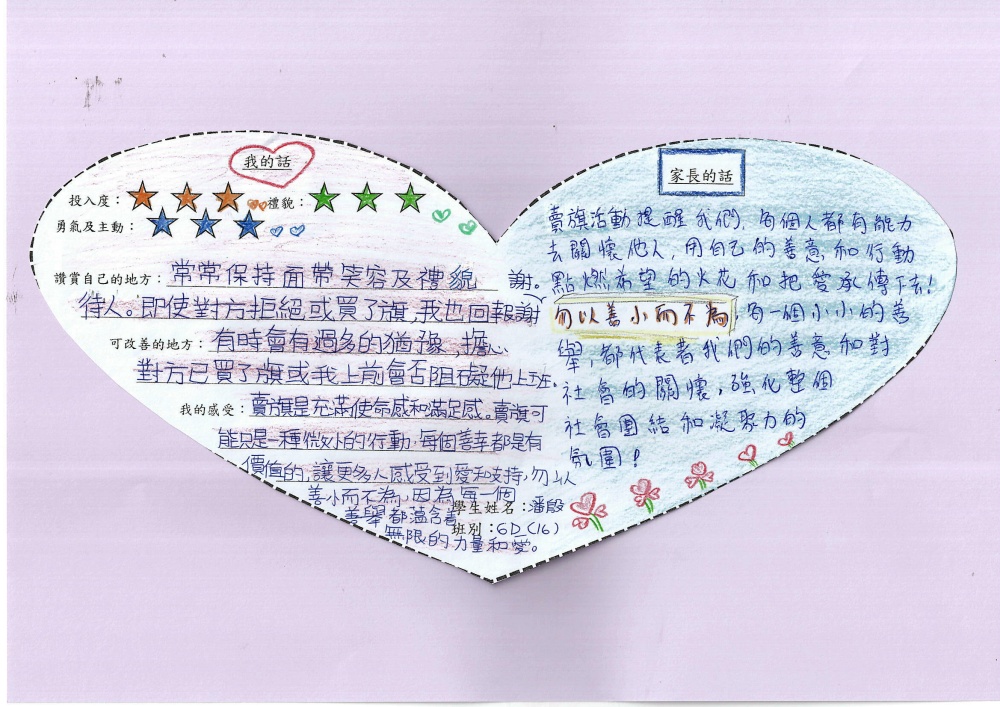 我的話
投入度：
禮貌：
勇氣及主動：
讚賞自己的地方：常常保持面帶笑容及禮貌
待人。即使對方拒絕或買了旗，我也回報謝謝。
可改善的地方：有時會有過多的猶豫，擔心
對方已買了旗或我上前會否阻礙他上班。
我的感受：賣旗是充滿使命感和滿足感。賣旗可
能只是一種微小的行動，每個善幸都是有
價值的，讓更多人感受到愛和支持，勿以
善小而不為，因為每一個
善舉都蘊含着
無限的力量和愛。
學生姓名：潘殷
班別：6D (16)
家長的話
賣旗活動提醒我們，每個人都有能力
去關懷他人，用自己的善意和行動
點燃希望的火花和把愛承傳下去！
勿以善小而不為，每一個小小的善
舉，都代表著我們的善意和對
社會的關懷，強化整個
社會團結和凝聚力的
氛圍！